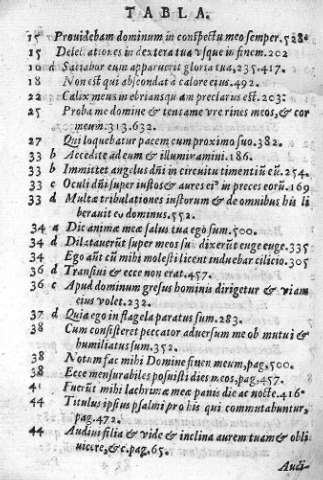 TABLA.
15 Prouidebam dominum in conspectu meo semper. 528.
15 Delectationes in dextera tua vsque in finem. 202
16 d Satiabor cum apparuerit gloria tua, 235. 417.
18 Non est qui abscondat a calore eius. 492.
22 Calix meus inebrians quam preclarus est. 203.
25 Proba me domine & tenta me vre renes meos, & cor
meum. 313. 632.
27 Qui loquebatur pacem cum proximo suo. 382.
33 b Accedite ad eum & illuminamini. 186.
33 b Immittet angelus dñi in circuitu timentiũ eũ. 254.
33 c Oculi dñi super iustos & aures eiꝰ in preces eorũ. 169
33 d Multæ tribulationes instorum & de omnibus his li
berauit eos dominus. 552.
34 a Dic animæ meæ salus tua ego sum. 500.
34 d Dilatauerũt super meos su dixerũt euge euge. 335
34 Ego aũt cũ mihi molesti licent induebar cilicio. 305
36 d Transiui & ecce non erat. 457.
36 c Apud dominum gresus hominis dirigetur & viam
eius volet. 232.
37 d Quia ego in flagela paratus sum. 283.
38 Cum consisteret peccator aduersum me ob mutui &
humiliatus sum. 352.
38 Notum fac mihi Domine finem meum, pag. 500.
38 Ecce mensurabiles posuisti dies meos, pag. 457.
41 Fuerũt mihi lachrimæ meæ panis die ac nocte. 416.
44 Titulus ipsius psalmi pro his qui commutabuntur,
pag. 472.
44 Audi filia & vide & inclina aurem tuam & obli
uiscere, &c. pag. 65.
Auer